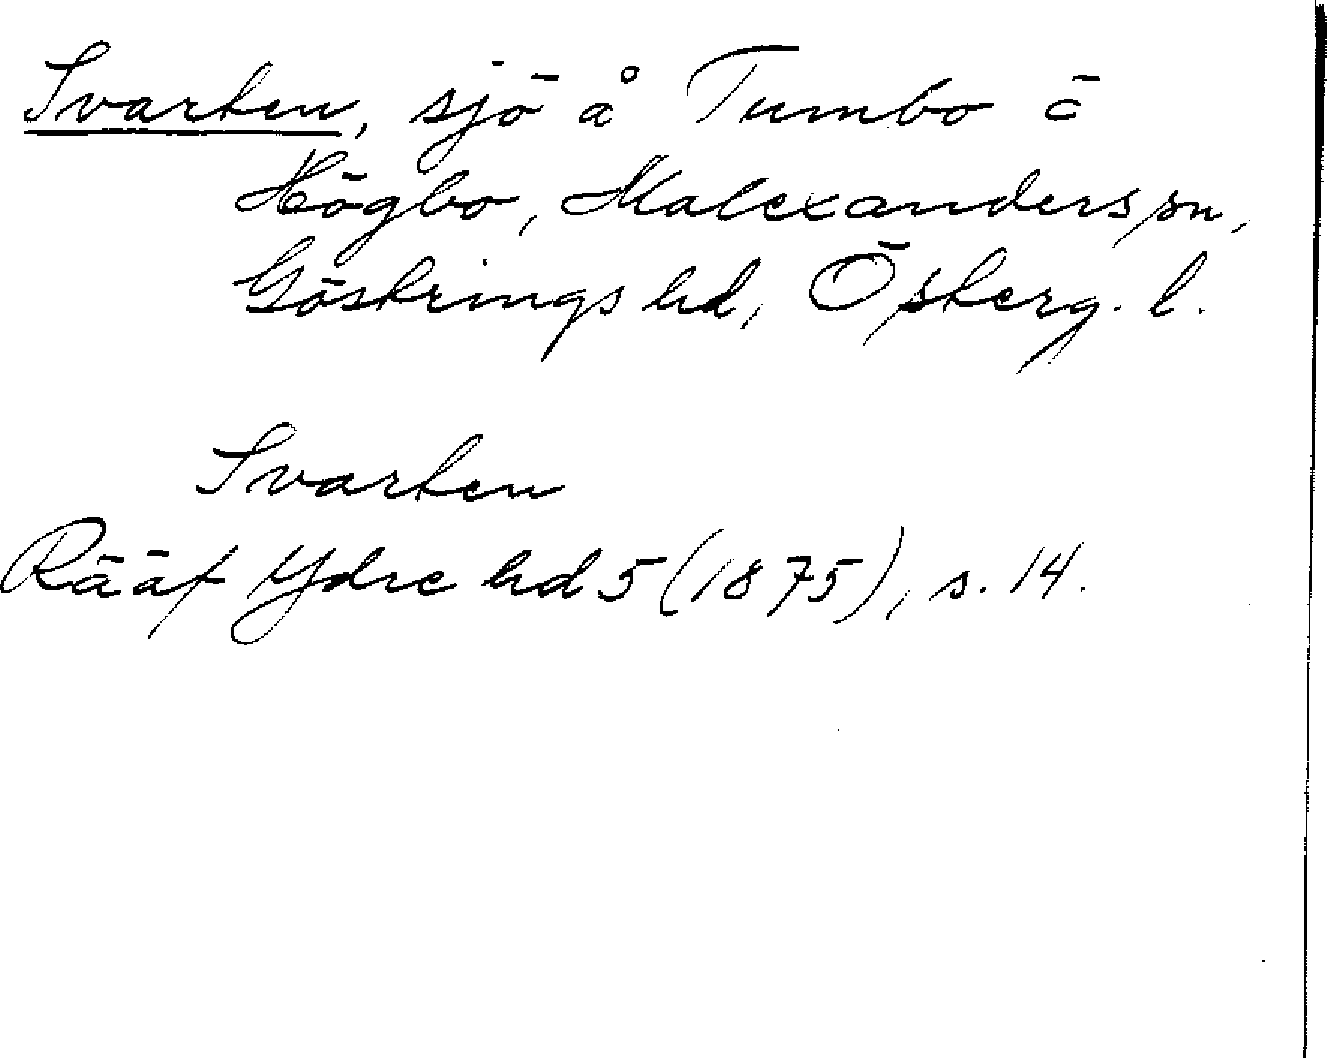 Svarten, sjö å Tumbo o
Högbo, Malexanders sn,
Göstrings hd, Österg. l.
Svarten
Rääf Ydre hd 5 (1875), s. 14.